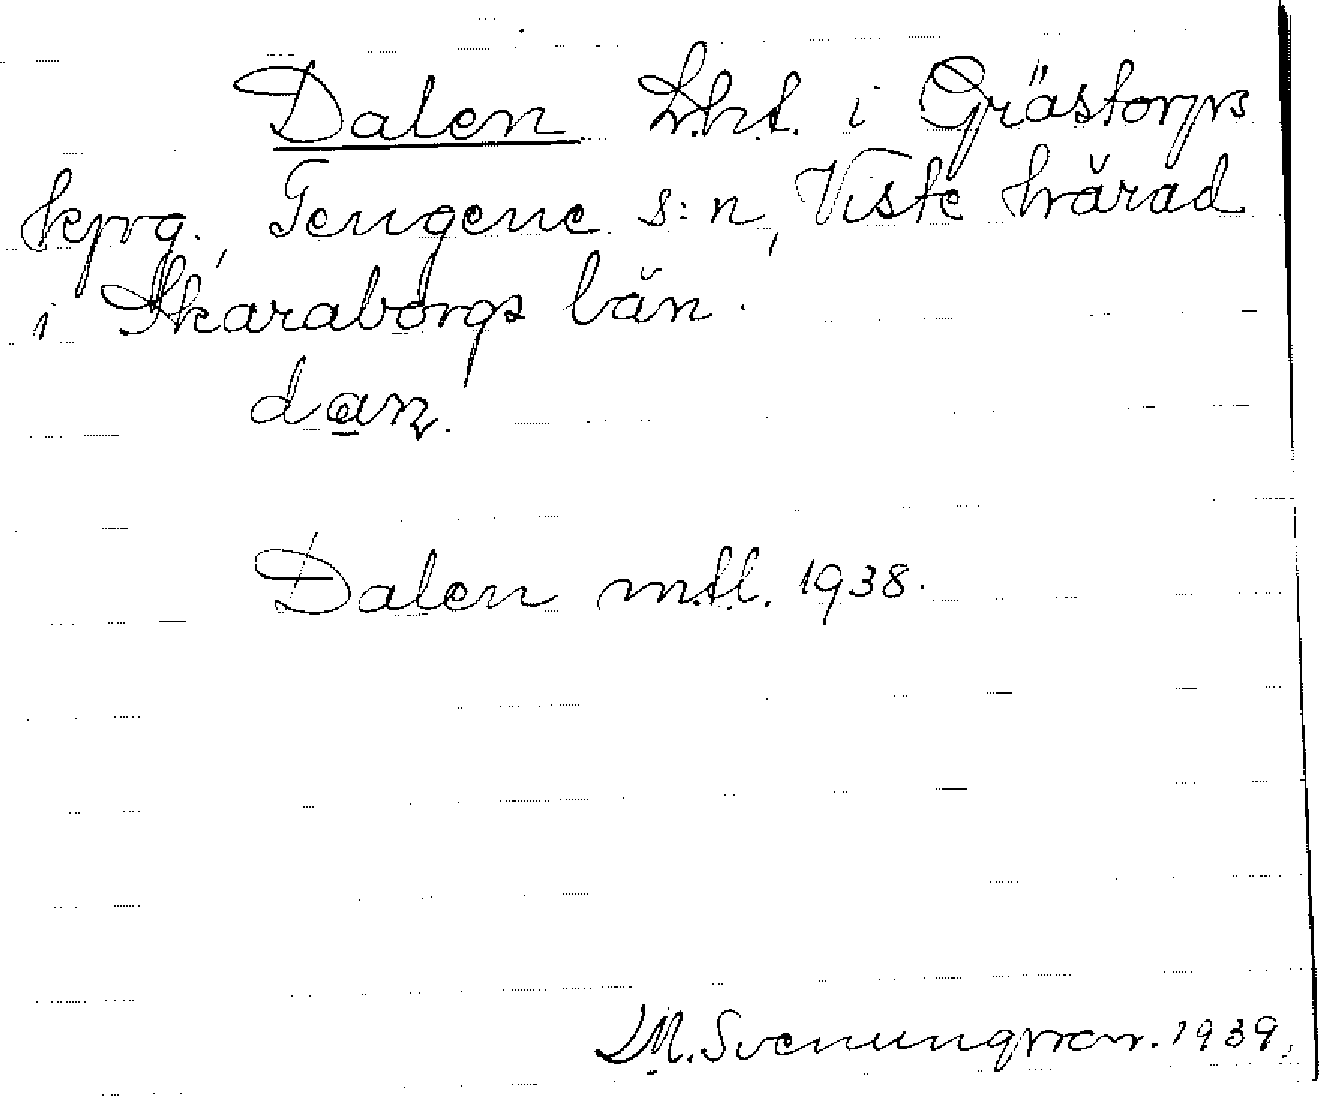 Dalen Lht. i Grästorps
kpg., Tengene s:n, Viste härad
i Skaraborgs län.
dan.
Dalen mtl. 1938.
M. Svenungsson. 1939.